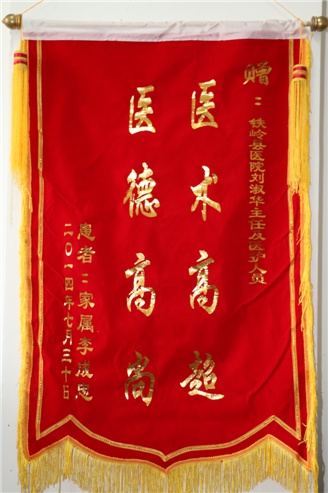 赠：铁岭县医院刘淑华主任及医护人员
医术高超
医德高尚
患者：家属李成忠
二〇一四年七月三十日